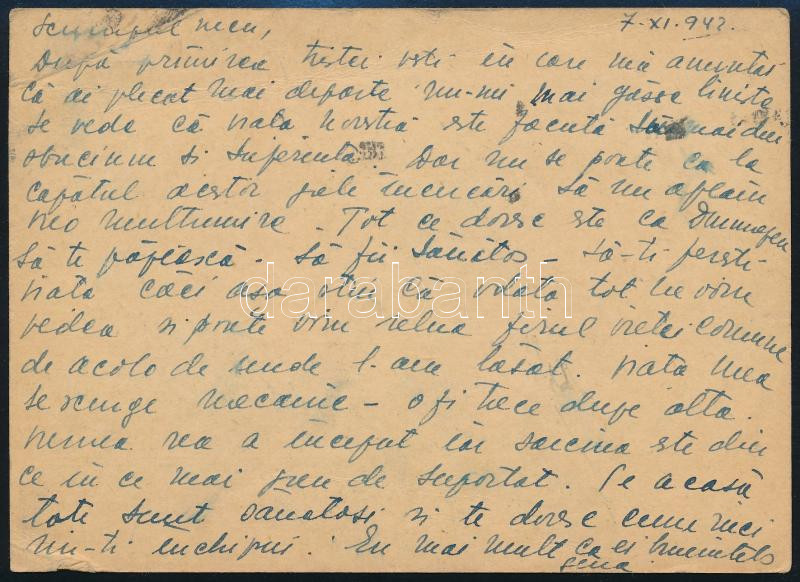 Scumpul meu,
7.XI.942.
Dupa primirea tristei vesti in care mă anuntai
că ai plecat mai departe nu-mi mai găsesc liniste
se vede că viata noastră este făcută numai din
sbucium si suferinta. Dar nu se poate ca la
capătul acestor grele incercări să nu aflăm
vreo multumire. Tot ce doresc este ca Dumnezeu
să te păzească. Să fii sănătos - să-ti feresti
viata căci asa stiu că odata tot ne vom
vedea si poate vom relua firul vietei comune
de acolo de unde l-am lăsat. Viata mea
se scurge mecanic - o zi trece dupe alta.
Vremea rea a inceput iar sarcina este din
ce in ce mai greu de suportat. Pe acasă
toti sunt sănătosi si te doresc cum nici
nu-ti inchipui. Eu mai mult ca ei
darabanth